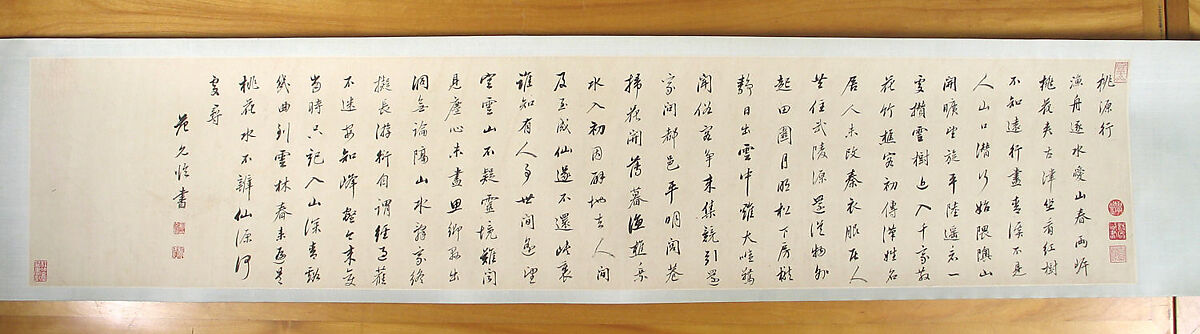 桃源行
漁舟逐水愛山春兩岍
桃花夾古津坐看紅樹
不知遠行盡青溪不見
人山口潛行始隈隩山
開曠望旋平陸遙看一
處攢雲樹近入千家散
花竹樵客初傳漢姓名
居人未改秦衣服居人
共住武陵源還從物外
起田園月明松下房櫳
靜日出雲中雞犬喧驚
聞俗客爭來集競引還
家問都邑平明閭巷
掃花開薄暮漁樵乘
水入初因避地去人間
及至成仙遂不還峽裏
誰知有人事世間遙望
空雲山不疑靈境難聞
見塵心未盡思鄉縣出
洞無論隔山水辭家終
擬長游衍自謂經過舊
不迷安知峰壑今來變
當時只記入山深青谿
幾曲到雲林春來遍是
桃花水不辨仙源何
處尋
范允臨書